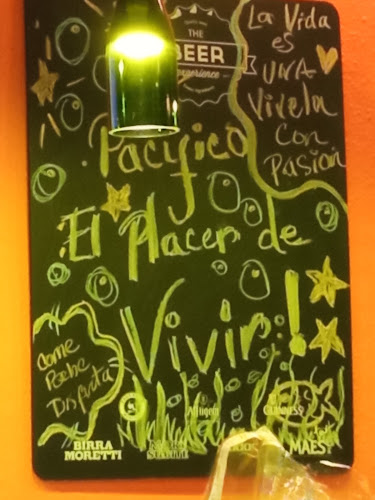 THE
BEER
experience
La Vida
es
UNA
Vivela
Con
Pasion
Pacifico
El Placer de
Vivir!
Come
Bebe
Disfruta
GUINNESS
BIRRA
MORETTI
MAES